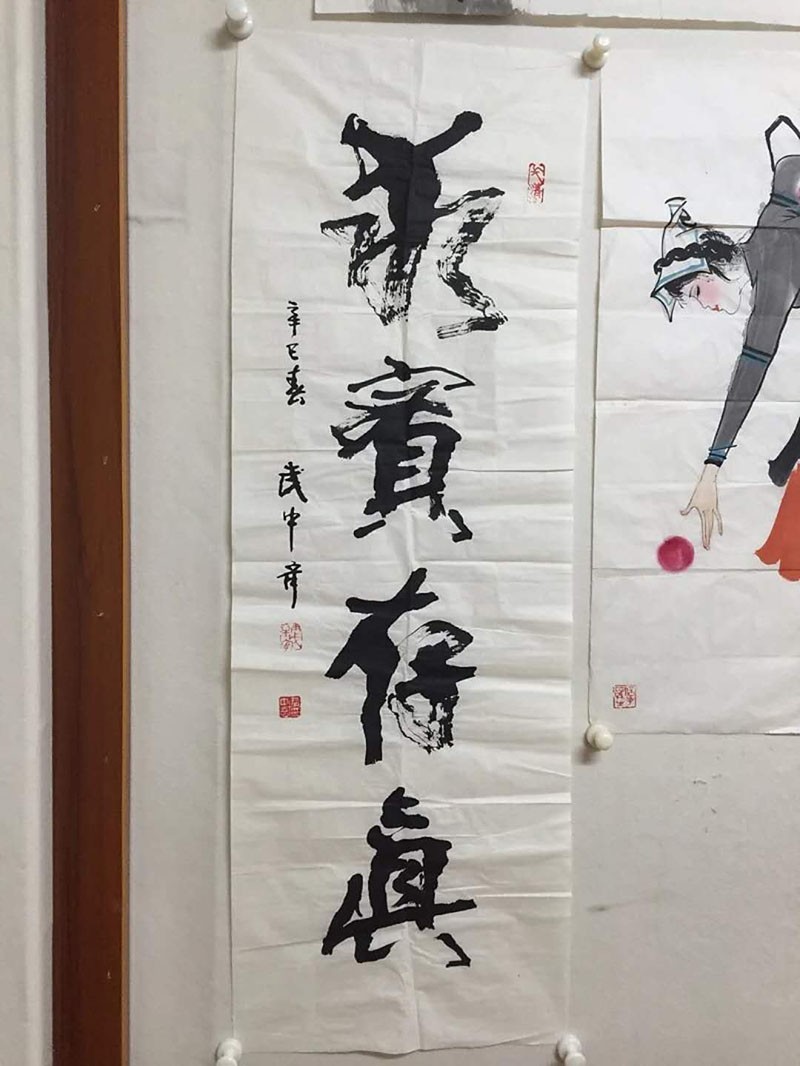 求實存眞
辛巳春 武中奇